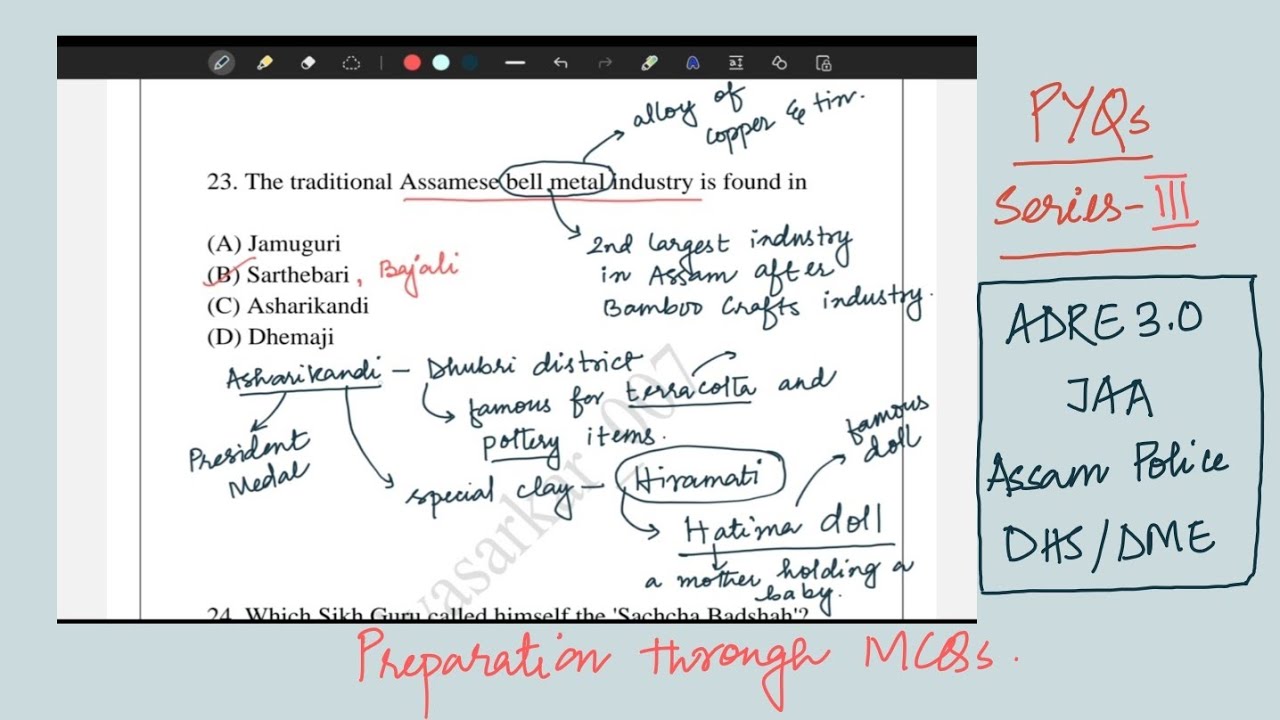 alloy of
copper & tin.
23. The traditional Assamese bell metal industry is found in
(A) Jamuguri
(B) Sarthebari, Bajali
(C) Asharikandi
(D) Dhemaji
2nd largest industry
in Assam after
Bamboo Crafts industry.
Asharikandi – Dhubri district
famous for terracotta and
pottery items.
President
Medal
special clay – Hiramati
famous
doll
Hatima doll
a mother holding a
baby.
24. Which Sikh Guru called himself the 'Sachcha Badshah'?
PYQs
Series-III
ADRE 3.0
JAA
Assam Police
DHS/DME
Preparation through MCQs.